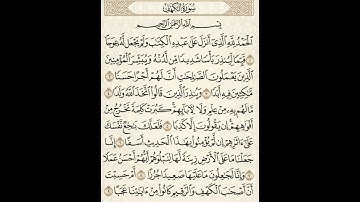 سُورَةُ الكَهْفِ
بِسْمِ اللَّهِ الرَّحْمَٰنِ الرَّحِيمِ
ٱلْحَمْدُ لِلَّهِ ٱلَّذِىٓ أَنزَلَ عَلَىٰ عَبْدِهِ ٱلْكِتَٰبَ وَلَمْ يَجْعَل لَّهُۥ عِوَجَا ۝١
قَيِّمًا لِّيُنذِرَ بَأْسًا شَدِيدًا مِّن لَّدُنْهُ وَيُبَشِّرَ ٱلْمُؤْمِنِينَ
ٱلَّذِينَ يَعْمَلُونَ ٱلصَّٰلِحَٰتِ أَنَّ لَهُمْ أَجْرًا حَسَنًا ۝٢
مَّٰكِثِينَ فِيهِ أَبَدًا ۝٣ وَيُنذِرَ ٱلَّذِينَ قَالُوا۟ ٱتَّخَذَ ٱللَّهُ وَلَدًا ۝٤
مَّا لَهُم بِهِۦ مِنْ عِلْمٍ وَلَا لِءَابَآئِهِمْ كَبُرَتْ كَلِمَةً تَخْرُجُ مِنْ
أَفْوَٰهِهِمْ إِن يَقُولُونَ إِلَّا كَذِبًا ۝٥ فَلَعَلَّكَ بَٰخِعٌ نَّفْسَكَ
عَلَىٰٓ ءَاثَٰرِهِمْ إِن لَّمْ يُؤْمِنُوا۟ بِهَٰذَا ٱلْحَدِيثِ أَسَفًا ۝٦ إِنَّا
جَعَلْنَا مَا عَلَى ٱلْأَرْضِ زِينَةً لَّهَا لِنَبْلُوَهُمْ أَيُّهُمْ أَحْسَنُ عَمَلًا
۝٧ وَإِنَّا لَجَٰعِلُونَ مَا عَلَيْهَا صَعِيدًا جُرُزًا ۝٨ أَمْ حَسِبْتَ
أَنَّ أَصْحَٰبَ ٱلْكَهْفِ وَٱلرَّقِيمِ كَانُوا۟ مِنْ ءَايَٰتِنَا عَجَبًا ۝٩